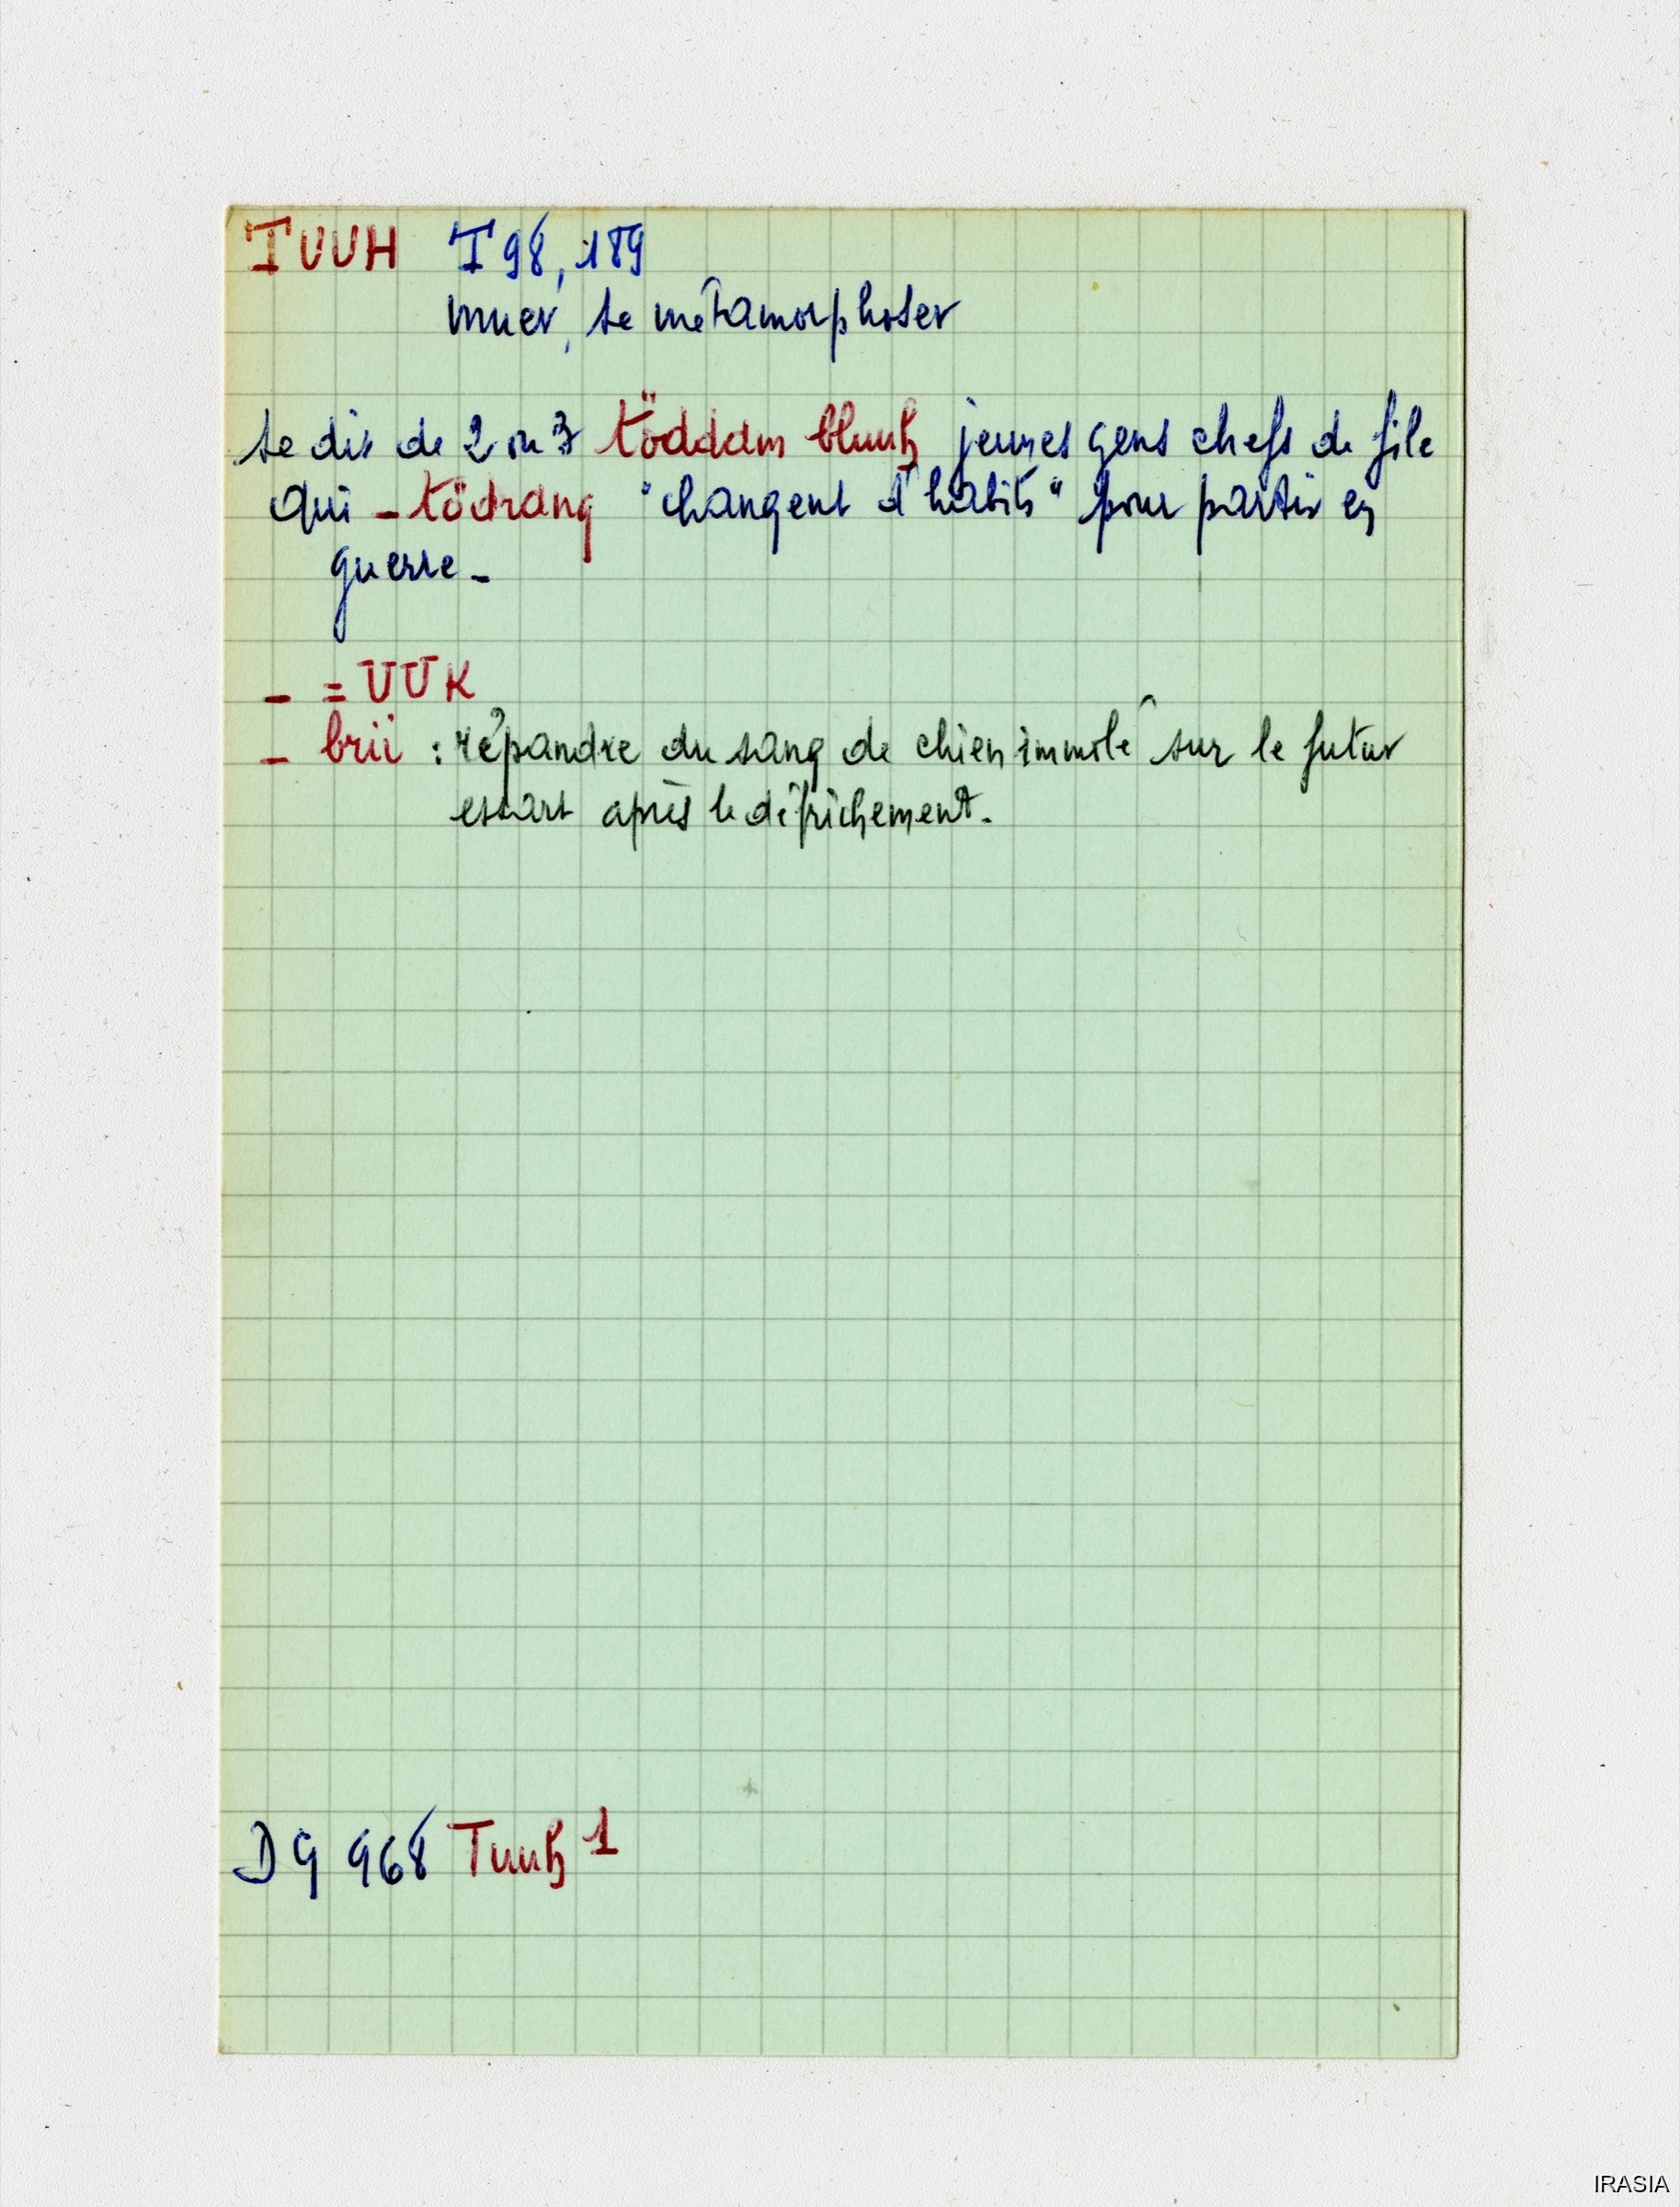 TUUH T 98, 189
muer, se métamorphoser
se dit de 2 ou 3 töddam bluuh jeunes gens chefs de file
qui _ tödrang "changent d'habits" pour partir en
guerre _
_ = UUK
_ brii : répandre du sang de chien immolé sur le futur
essart après le défrichement.
D G 968 Tuuh 1
IRASIA